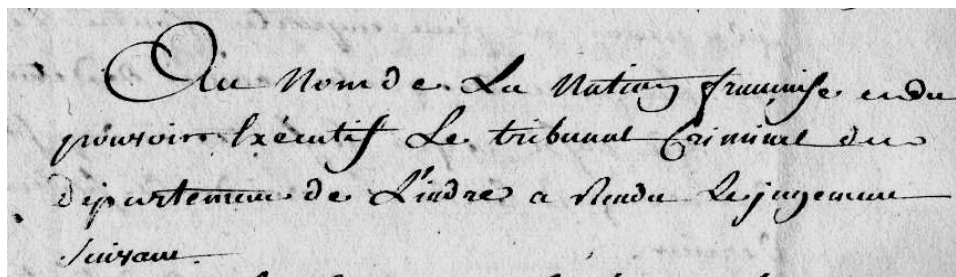 Au Nom de La Nation française et du
pouvoir Exécutif Le tribunal Criminel du
département de L'indre a Rendu Le jugement
suivant.